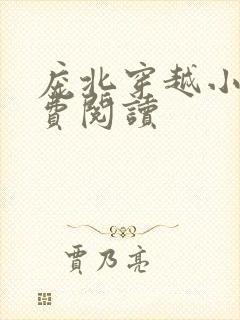 庶北穿越小
費閱讀
賈乃亮